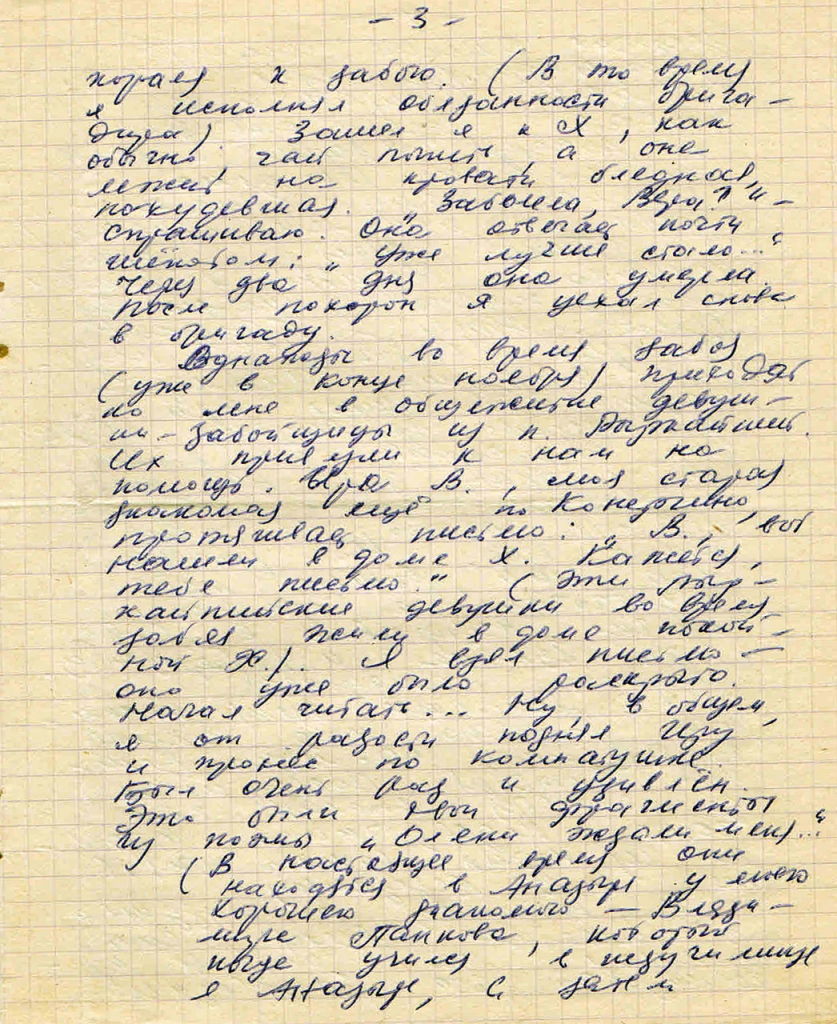 - 3 -
кораля к забою. (В то время
я исполнял обязанности брига-
дира). Зашел я к Х., как
обычно, чай попить, а она
лежит на кровати бледная,
похудевшая. „Заболела, Вера?" -
спрашиваю. Она отвечает почти
шёпотом: „Уже лучше стало..."
Через два дня она умерла.
После похорон я уехал снова
в бригаду.
Однажды во время забоя
(уже в конце ноября) приходят
ко мне в общежитие девуш-
ки-забойщицы из п. Рыркайпий.
Их привезли к нам на
помощь. Ира В., моя старая
знакомая ещё по Конергино,
протягивает письмо: „В., вот
нашли в доме Х. Кажется,
тебе письмо." (Эти рыр-
кайпийские девушки во время
забоя жили в доме покой-
ной Х.). Я взял письмо -
оно уже было раскрыто.
Начал читать... Ну, в общем,
я от радости поднял Иру
и пронес по комнатушке.
Был очень рад и удивлён.
Это были твои фрагменты
из поэмы „Олени ждали меня..."
(В настоящее время они
находятся в Анадыре у моего
хорошего знакомого - Влади-
мира Панкова, который
учился в педучилище
в Анадыре, а затем